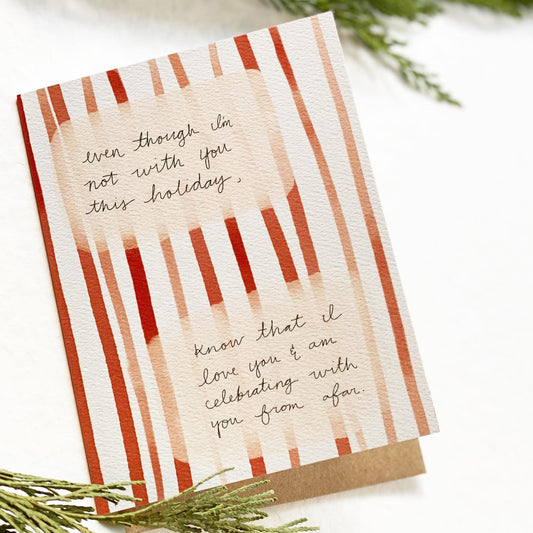 even though i'm
not with you
this holiday,
know that i
love you & am
celebrating with
you from afar.